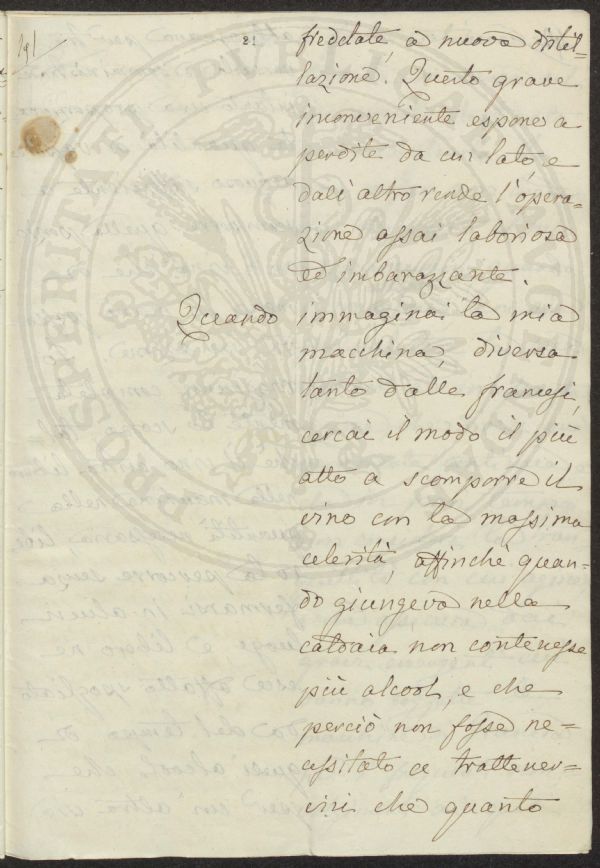 191
21
freddate, a nuova distil=
lazione. Questo grave
inconveniente espone a
perdite da un lato, e
dall'altro rende l'opera=
zione assai laboriosa
ed imbarazzante.
Quando immaginai la mia
macchina, diversa
tanto dalle francesi,
cercai il modo il più
atto a scomporre il
vino con la massima
celerità, affinchè quan=
do giungeva nella
caldaia non contenesse
più alcool, e che
perciò non fosse ne=
cessitato a trattener=
visi che quanto